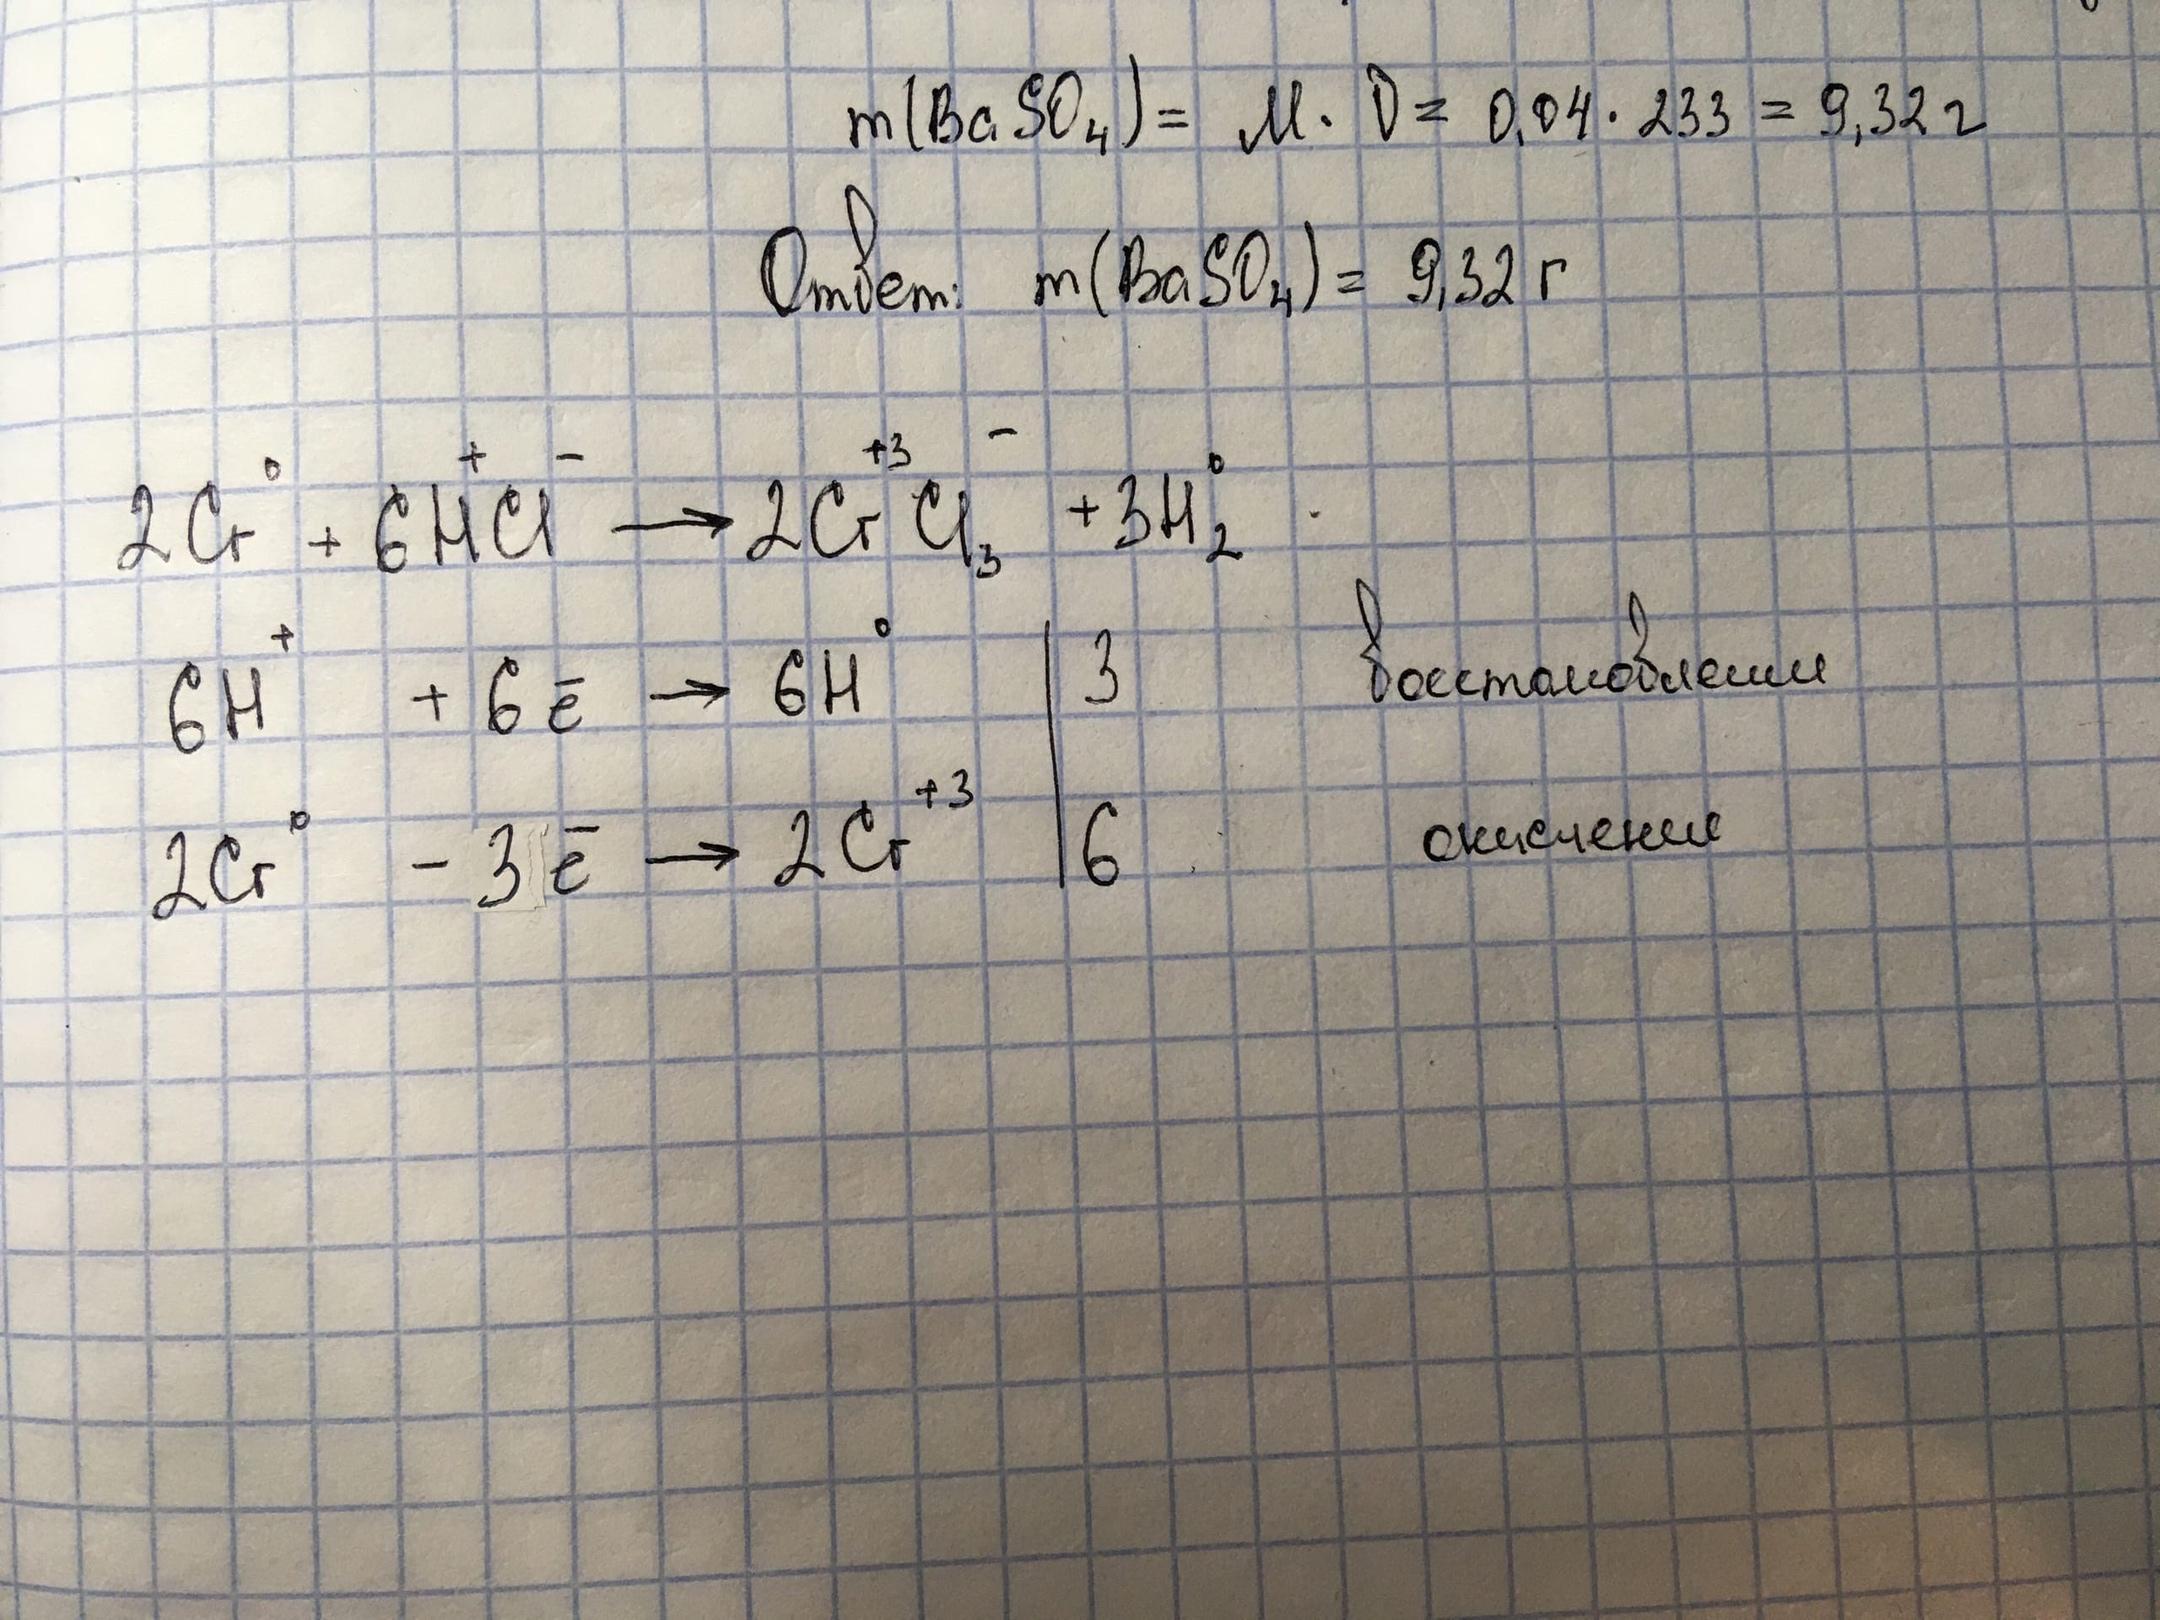 m(BaSO₄) = M · ν = 0,04 · 233 = 9,32 г
Ответ: m(BaSO₄) = 9,32 г
2Cr⁰ + 6H⁺Cl⁻ → 2Cr⁺³Cl₃⁻ + 3H₂⁰
6H⁺ + 6ē → 6H⁰ | 3 восстановление
2Cr⁰ - 3ē → 2Cr⁺³ | 6 окисление